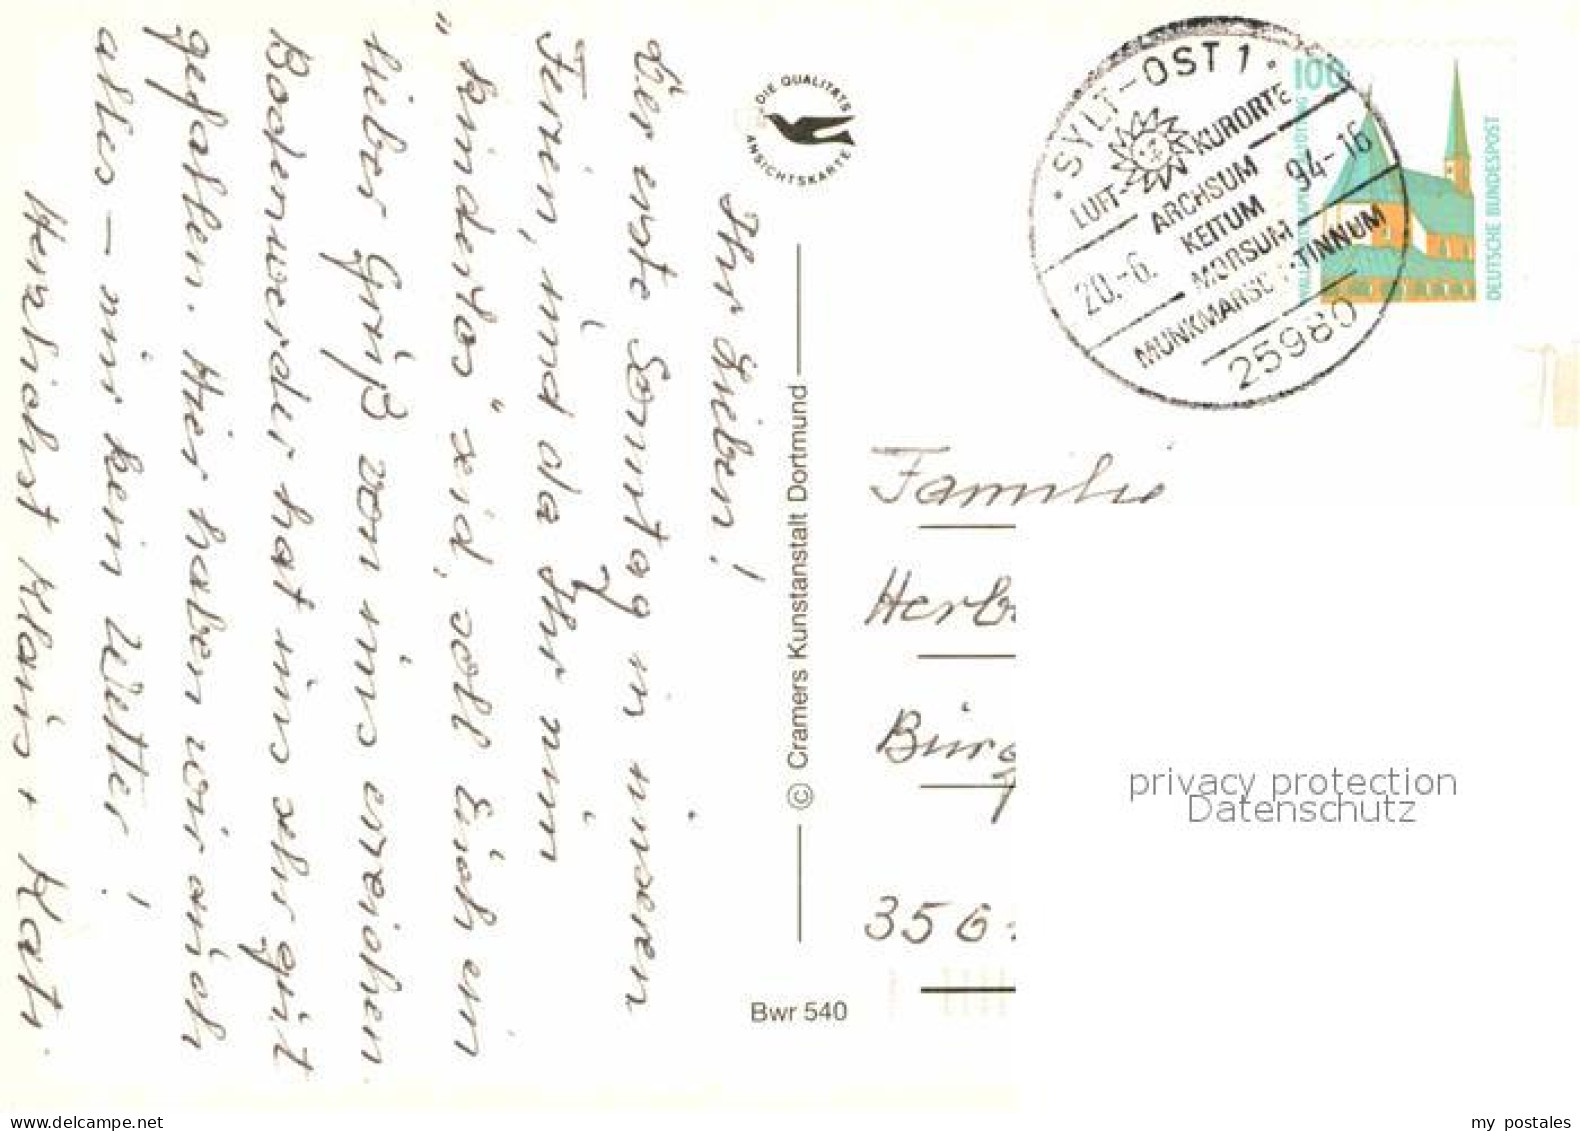 Ihr Lieben!
Der erste Sonntag in unseren
Ferien, und da Ihr nun
"kinderlos" seid, soll Euch ein
lieber Gruß von uns erreichen.
Bodenwerder hat uns sehr gut
gefallen. Hier haben wir auch
alles – nur kein Wetter!
Herzlichst Klaus + Kati.
DIE QUALITÄTS
ANSICHTSKARTE
© Cramers Kunstanstalt Dortmund
Bwr 540
SYLT-OST 1
LUFT- KURORTE
ARCHSUM
KEITUM
MORSUM
MUNKMARSCH-TINNUM
20.-6. 94-16
25980
100
DEUTSCHE BUNDESPOST
Familie
Herb
Bürg
356
privacy protection
Datenschutz
www.delcampe.net
my postales